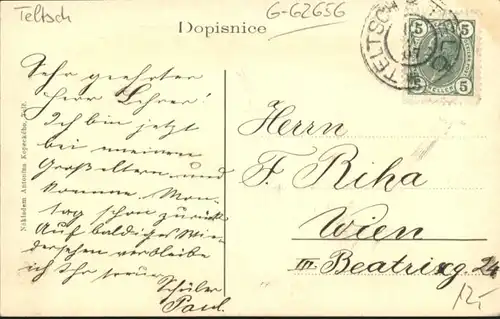 Teltsch
G-62656
Dopisnice
TELTSCH
5 5
HELLER
5 5
Sehr geehrter
Herr Lehrer!
Ich bin jetzt
bei meinen
Großeltern und
komme Mon-
tag schon zurück
Auf baldiges Wie-
dersehen verbleibe
ich Ihr treuer
Schüler
Paul.
Herrn
F. Riha
Wien
III. Beatrixg. 24
12.-
Nákladem Antonína Kopeckého, Telč.